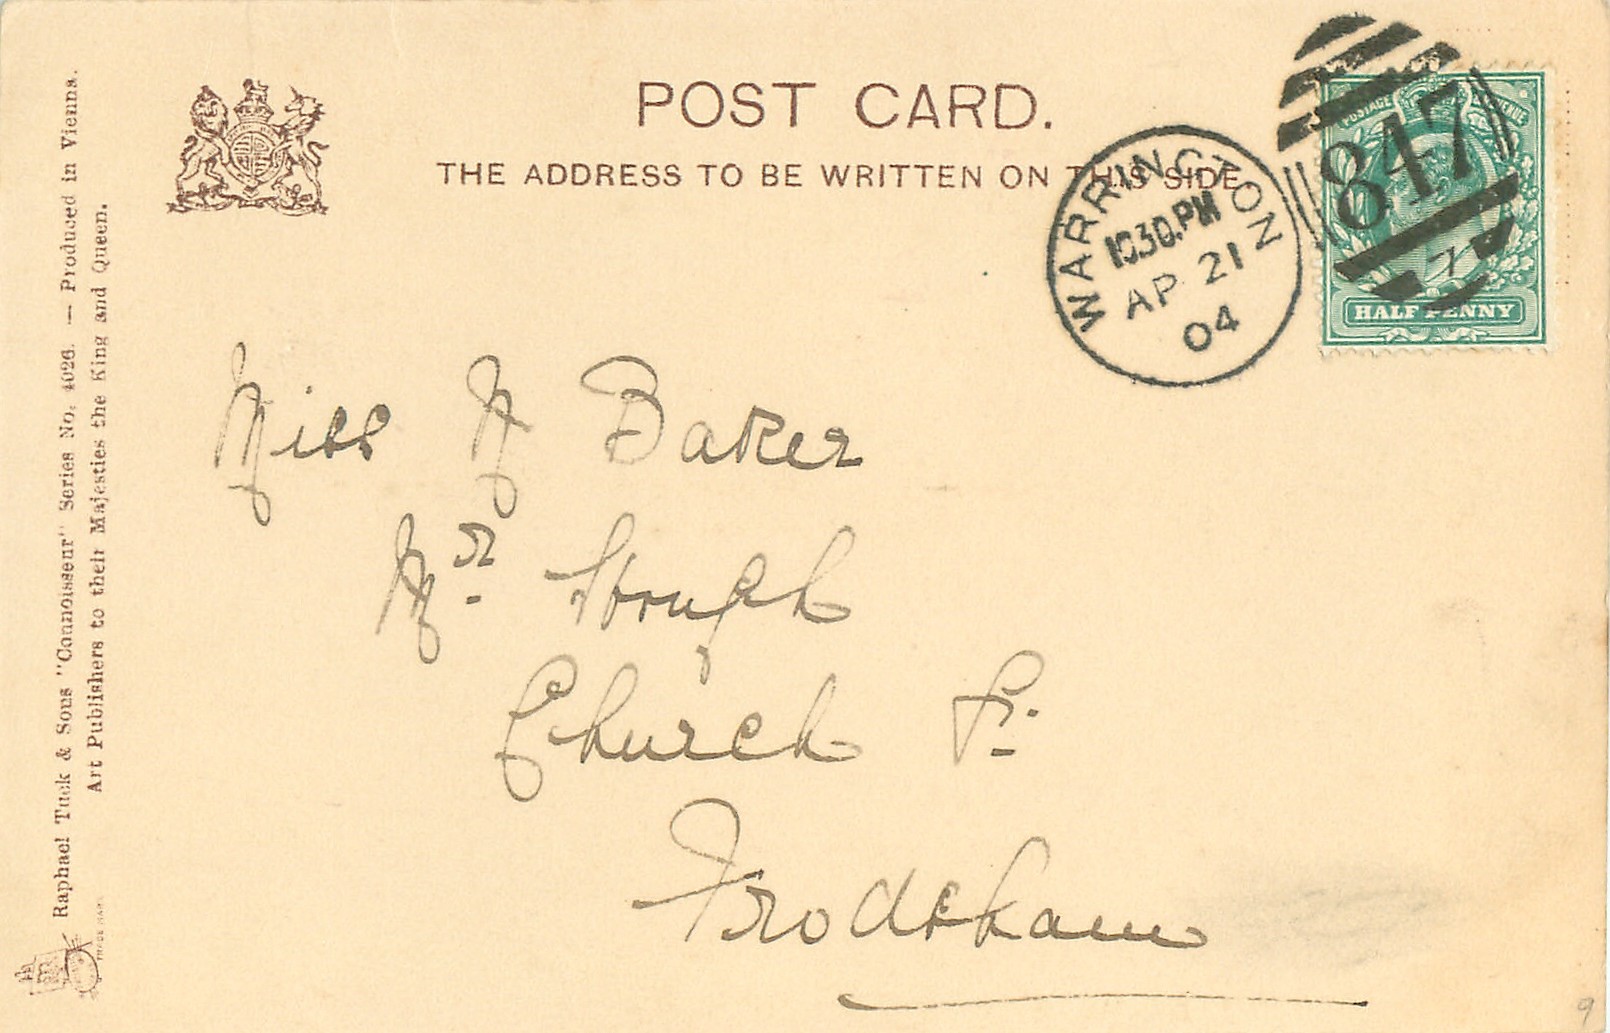 POST CARD.
THE ADDRESS TO BE WRITTEN ON THIS SIDE
WARRINGTON
10.30.PM
AP 21
04
847
7
POSTAGE REVENUE
HALF PENNY
Miss M Baker
Mr.
Church St.
Frodsham
Raphael Tuck & Sons "Connoisseur" Series No. 4026. — Produced in Vienna.
Art Publishers to their Majesties the King and Queen.
TRADE MARK
9